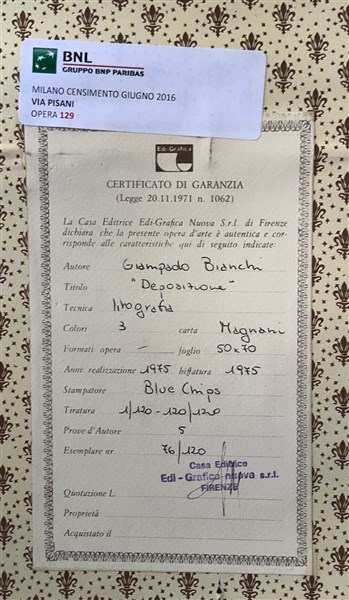 BNL
GRUPPO BNP PARIBAS
MILANO CENSIMENTO GIUGNO 2016
VIA PISANI
OPERA 129
Edi-Grafica
CERTIFICATO DI GARANZIA
(Legge 20.11.1971 n. 1062)
La Casa Editrice Edi-Grafica Nuova S.r.l. di Firenze
dichiara che la presente opera d'arte è autentica e cor-
risponde alle caratteristiche qui di seguito indicate:
Autore Giampaolo Bianchi
Titolo "Deposizione"
Tecnica litografia
Colori 3 carta Magnani
Formati: opera — foglio 50x70
Anni: realizzazione 1975 biffatura 1975
Stampatore Blue Chips
Tiratura 1/120 - 120/120
Prove d'Autore 5
Esemplare nr. 76/120
Casa Editrice
Edi - Grafica nuova s.r.l.
FIRENZE
Quotazione L.
Proprietà
Acquistato il